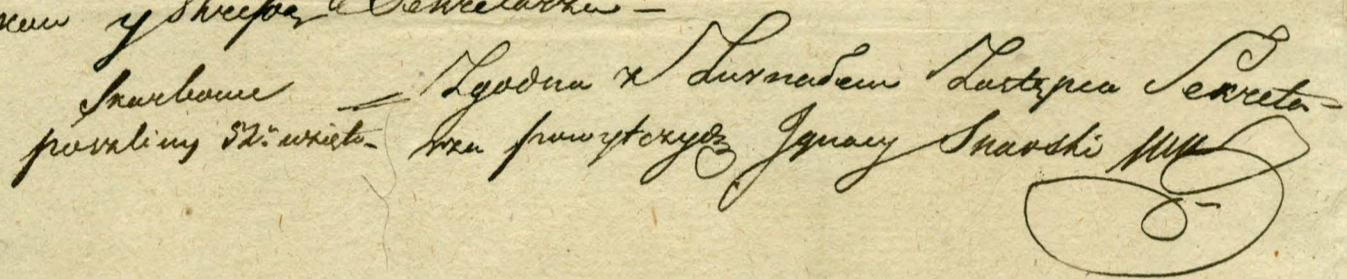 y Skrepą Sekretarza —
Skarbowe
poszliny 52: wzięto
Zgodno z Żurnałem Zastępca Sekreta=
rza powytczyk Ignacy Snarski mp